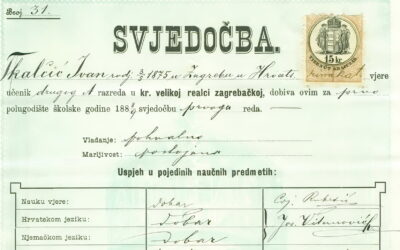 Broj 31.
SVJEDOČBA.
15 kr
Tkalčić Ivan rodj. 3/5 1875 u Zagrebu u Hrvatskoj vjere
učenik drugog A razreda u kr. velikoj realci zagrebačkoj, dobiva ovim za prvo
polugodište školske godine 188 svjedočbu prvoga reda —
Vladanje: pohvalno
Marljivost: postojana
Uspjeh u pojedinih naučnih predmetih:
Nauku vjere: dobar
Hrvatskom jeziku: dobar Jos.
Njemačkom jeziku: dobar